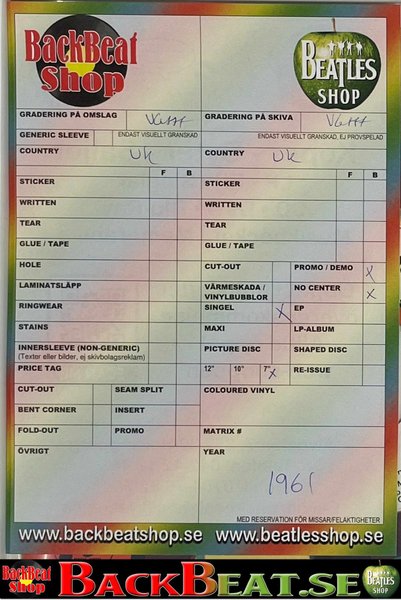 BackBeat
Shop
BEATLES
SHOP
GRADERING PÅ OMSLAG VG+++ GRADERING PÅ SKIVA VG+++
GENERIC SLEEVE ENDAST VISUELLT GRANSKAD ENDAST VISUELLT GRANSKAD, EJ PROVSPELAD
COUNTRY UK COUNTRY UK
F B F B
STICKER STICKER
WRITTEN WRITTEN
TEAR TEAR
GLUE / TAPE GLUE / TAPE
HOLE CUT-OUT PROMO / DEMO X
LAMINATSLÄPP VÄRMESKADA / VINYLBUBBLOR NO CENTER X
RINGWEAR SINGEL X EP
STAINS MAXI LP-ALBUM
INNERSLEEVE (NON-GENERIC) PICTURE DISC SHAPED DISC
(Texter eller bilder, ej skivbolagsreklam)
PRICE TAG 12" 10" 7" X RE-ISSUE
CUT-OUT SEAM SPLIT COLOURED VINYL
BENT CORNER INSERT
FOLD-OUT PROMO MATRIX #
ÖVRIGT YEAR
1961
MED RESERVATION FÖR MISSAR/FELAKTIGHETER
www.backbeatshop.se www.beatlesshop.se
BackBeat
Shop
BACKBEAT.SE
BEATLES
SHOP